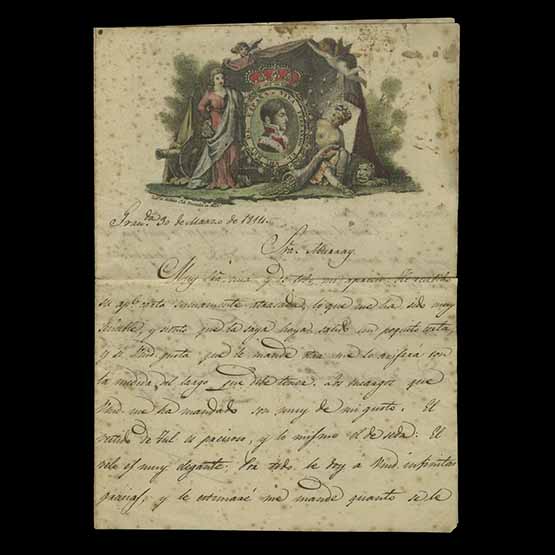 Gran.da 30 de Marzo de 1814.
Sra. Murray.
Muy Sra. mia y de todo mi aprecio: He recibido
su ap.te carta sumamente atrasada, lo que me ha sido muy
sensible, y siento que la saya haya salido un poquito corta,
y si Vmd. gusta que le mande otra me lo avisera con
la medida del largo que debe tener. Los encargos que
Vmd. me ha mandado son muy de mi gusto. El
vestido de Tul es precioso, y lo mismo el de seda: El
velo es muy elegante: Por todo le doy a Vmd. infinitas
gracias, y le estimaré me mande quanto se le